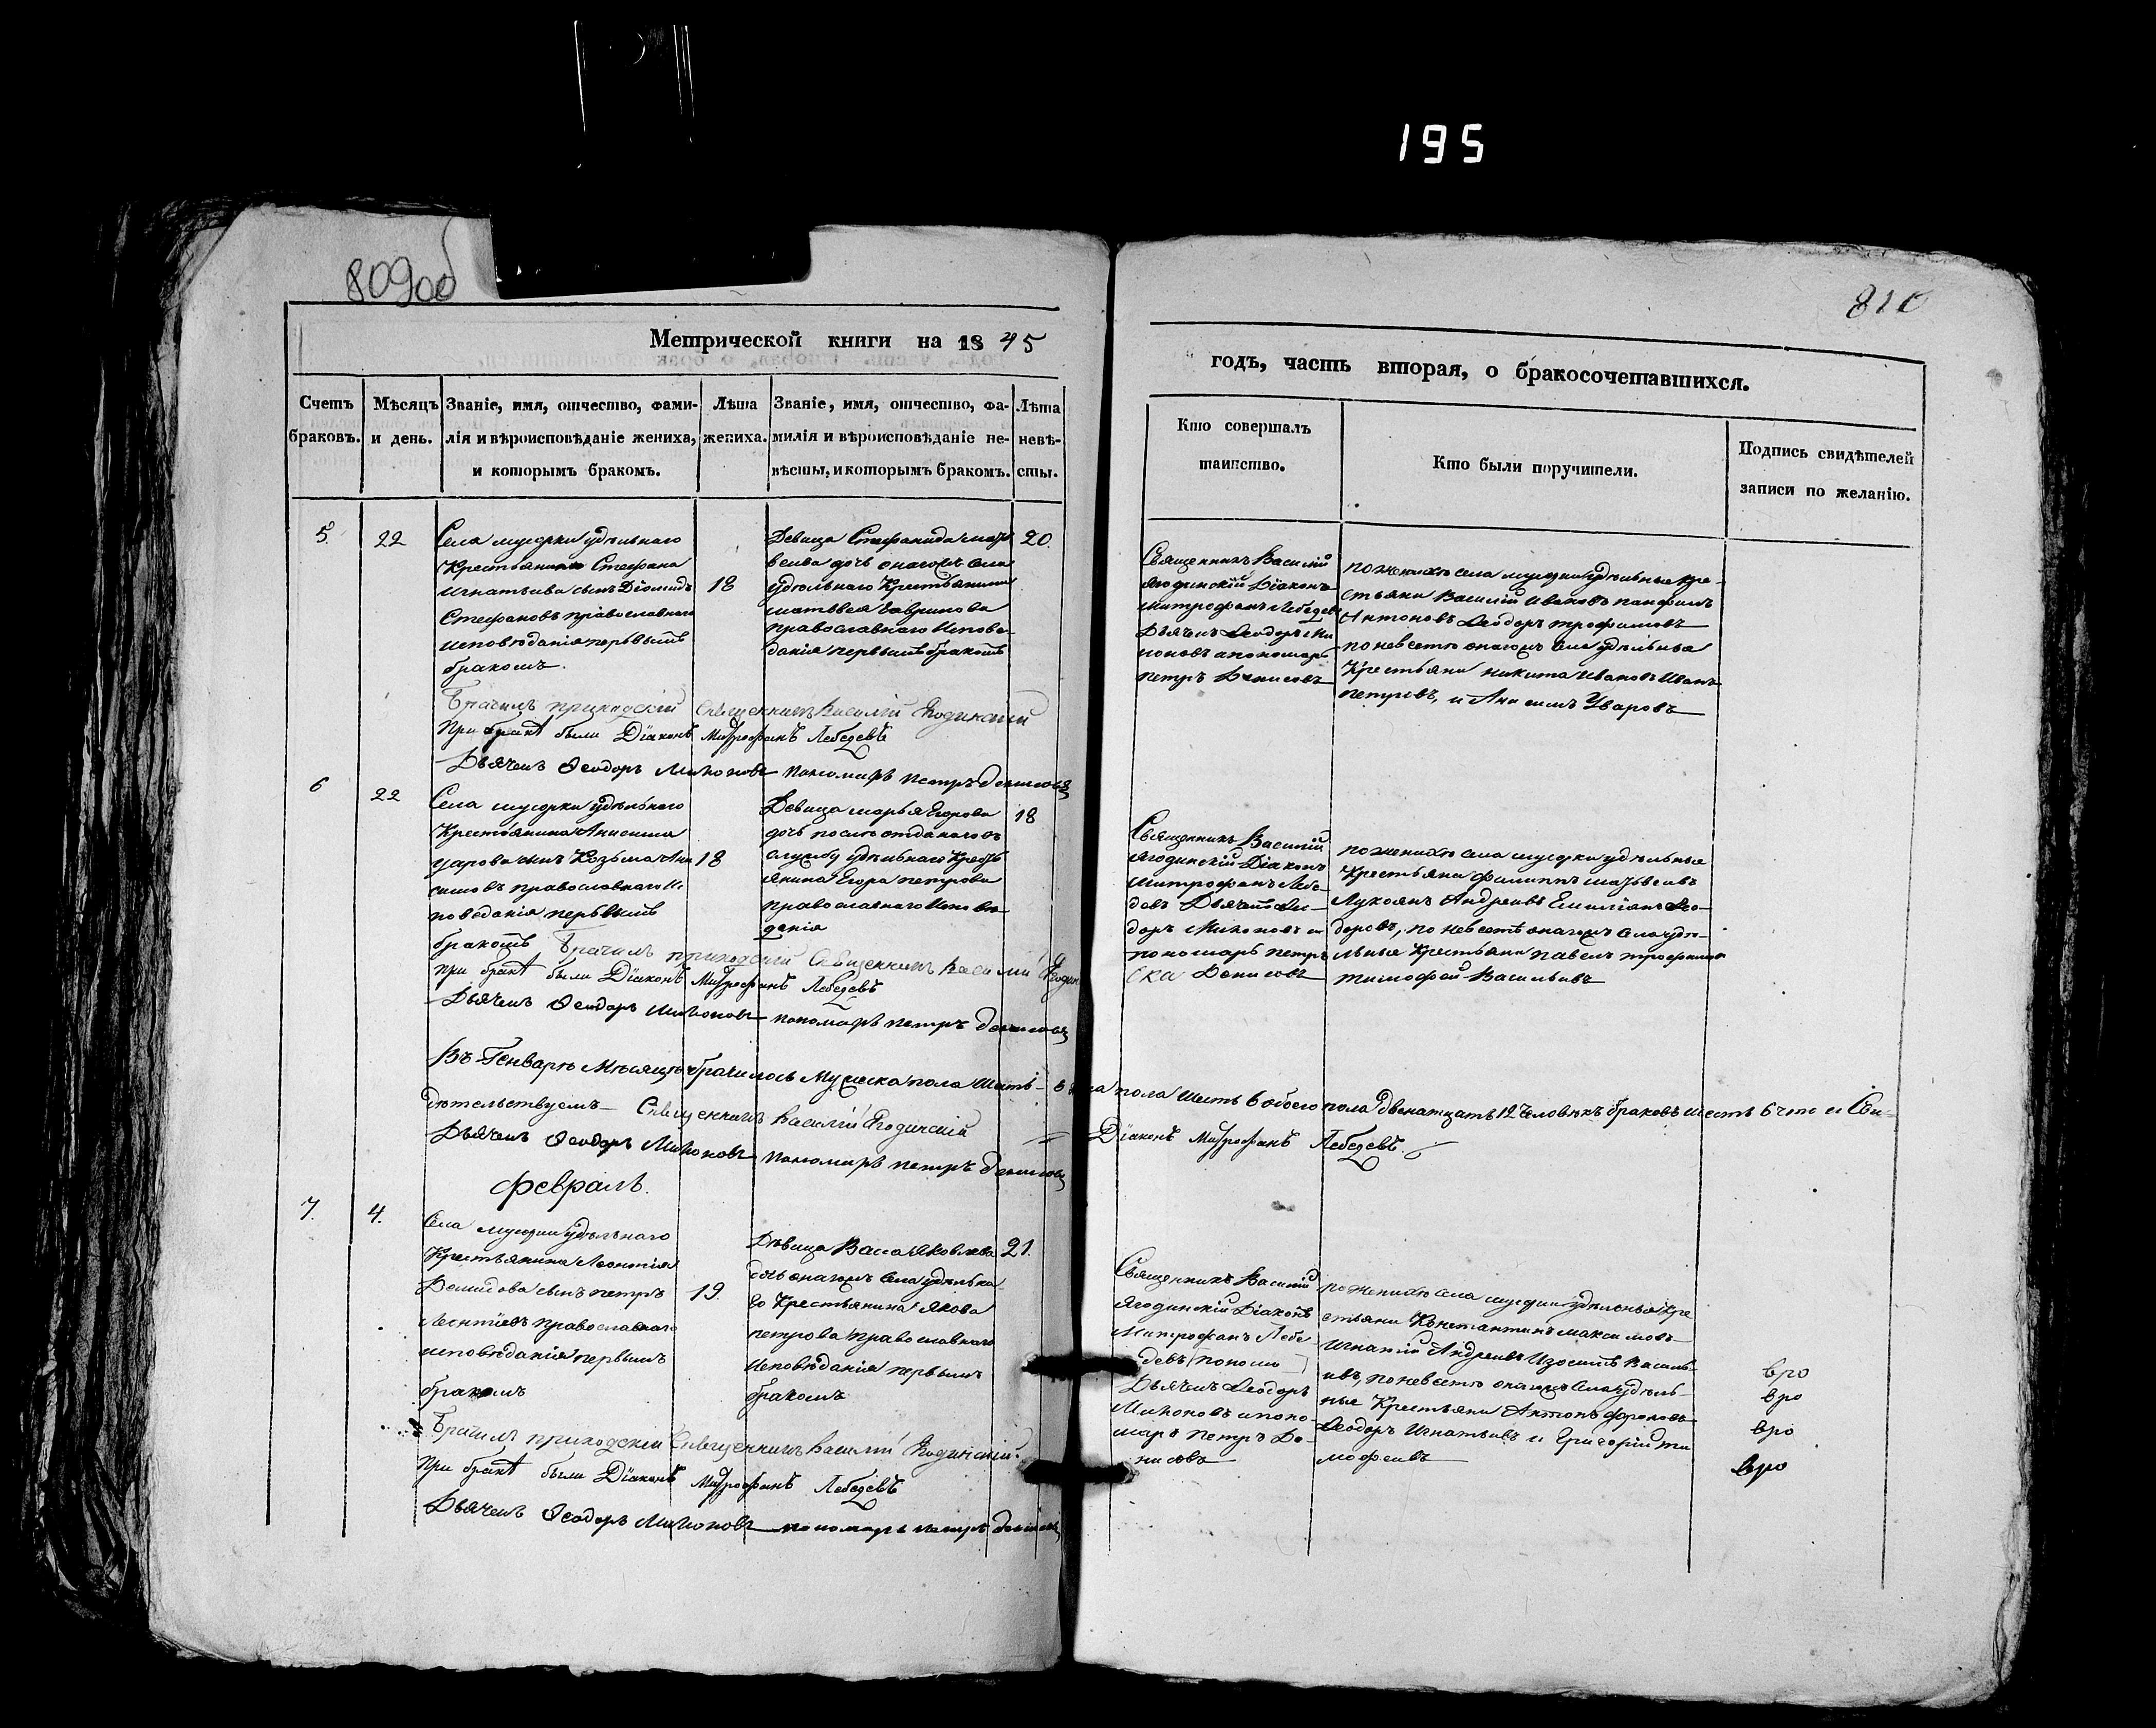 195
809об
810
Метрической книги на 1845
годъ, часть вторая, о бракосочетавшихся.
Счетъ браковъ.
Мѣсяцъ и день.
Званіе, имя, отчество, фами-
лія и вѣроисповѣданіе жениха,
и которымъ бракомъ.
Лѣта
жениха.
Званіе, имя, отчество, фа-
милія и вѣроисповѣданіе не-
вѣсты, и которымъ бракомъ.
Лѣта
невѣ-
сты.
Кто совершалъ
таинство.
Кто были поручители.
Подпись свидѣтелей
записи по желанію.
5.
22
Села мусорки удѣльнаго
Крестьянина Стефана
игнатьива сынъ Діомидъ
Стефановъ православнаго
исповѣданія первымъ
бракомъ.
18
Девица Стефанида мат
веива дочь онагожъ села
удѣльнаго Крестьянина
матьвея Гаврилова
православнаго Испове-
данія первымъ бракомъ
20.
Священникъ Василій
Ягодинскій Діаконъ
митрофанъ Лебедевъ
Дьячекъ Ѳеодоръ Ми
хоновъ а пономарь
петръ Денисовъ
по женихѣ села мусорки удѣльные кре-
стьяни Василій Ивановъ панфилъ
Антоновъ Ѳеодоръ трофимовъ
по невестѣ онагожъ села удѣльныя
Крестьяни никита Ивановъ Иванъ
петровъ, и Анисимъ Уваровъ
Брачилъ приходскій Священникъ Василій Ягодинскій
При бракѣ были Діаконъ Митрофанъ Лебедевъ
Дьячекъ Ѳеодоръ Михоновъ пономарь петръ денисовъ
6
22
Села мусорки удѣльнаго
Крестьянина Анисима
уарова сынъ Козьма Ани
симовъ православнаго Ис
поведанія первымъ
бракомъ
18
Девица марья Егорова
дочь послѣ отданаго въ
службу удѣльнаго Крест
янина Егора петрова
православнаго Исповѣ-
данія
18
Священникъ Василій
Ягодинскій Діаконъ
митрофанъ Лебе-
девъ Дьячекъ Ѳео-
доръ Михоновъ и
пономарь петръ
Денисовъ
по женихѣ села мусорки удѣльные
Крестьяни филиппъ матьвеивъ
Лукоянъ Андреивъ Емиліянъ Ѳео-
доровъ, по невестѣ онагожъ села удѣ-
льные Крестьяни павелъ трофимовъ
тимофей Васильивъ
Брачилъ приходскій Священникъ Василій Ягодин
ска
при бракѣ были Діаконъ Митрофанъ Лебедевъ
Дьячекъ Ѳеодоръ Михоновъ пономарь петръ денисовъ
Въ Генварѣ Мѣсяцѣ брачилось Мужеска пола шесть 6 пола шесть 6 обоего пола двенатцать 12 человѣкъ браковъ шесть 6 что и Сви-
дѣтельствуемъ Священникъ Василій Ягодинскій Діаконъ Митрофанъ Лебедевъ.
Дьячекъ Ѳеодоръ Михоновъ пономарь петръ денисовъ
февраль.
7.
4.
Села мусорки удѣльнаго
Крестьянина Леонтія
Демидова сынъ петръ
Леонтіевъ православнаго
исповѣданія первымъ
бракомъ
19.
Дѣвица Васса Яковлева
дочь онагожъ села удѣльна
го Крестьянина Якова
петрова православнаго
Исповѣданія первымъ
бракомъ
21.
Священникъ Василій
Ягодинскій Діаконъ
Митрофанъ Лебе
девъ [пономо]
Дьячекъ Ѳеодоръ
Михоновъ и поно
марь петръ Де-
нисовъ
по женихѣ села мусорки удѣльныя кре
стьяни Кѡнстантинъ максимовъ
Игнатій Андреивъ Изосимъ Василь-
ивъ, по невестѣ онагожъ села удѣль-
ные Крестьяни Антонъ фроловъ
Ѳеодоръ Игнатьивъ и Григорій ти
мофеивъ
вро
вро
вро
вро
Брачилъ приходскій Священникъ Василій Ягодинскій.
При бракѣ были Діаконъ Митрофанъ Лебедевъ
Дьячекъ Ѳеодоръ Михоновъ пономарь петръ денисовъ